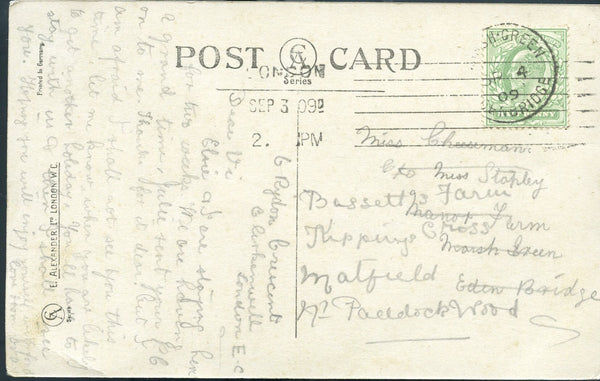 POST CARD
CA
Series
LONDON
SEP 3 09
2. PM
MARSH-GREEN
4
09
EDENBRIDGE
Printed in Germany
E. ALEXANDER, Ld LONDON W.C.
CA
Series
6 Rydon Crescent
Clerkenwell
London E C
Dear Vi
Elsie & I are staying here
for two weeks. We are having
a grand time, Julie sent your P.C.
on to me. Thanks for it dear. But I
am afraid I shall not see you this
time let me know when you are likely
to get another holiday. You'll have to
stay with us
you. Hoping you will enjoy yourself
Miss Cheesman
C/o Miss Stapley
Bassetts Farm
Manor Farm
Kippings Cross
Marsh Green
Matfield
Eden Bridge
Nr Paddock Wood